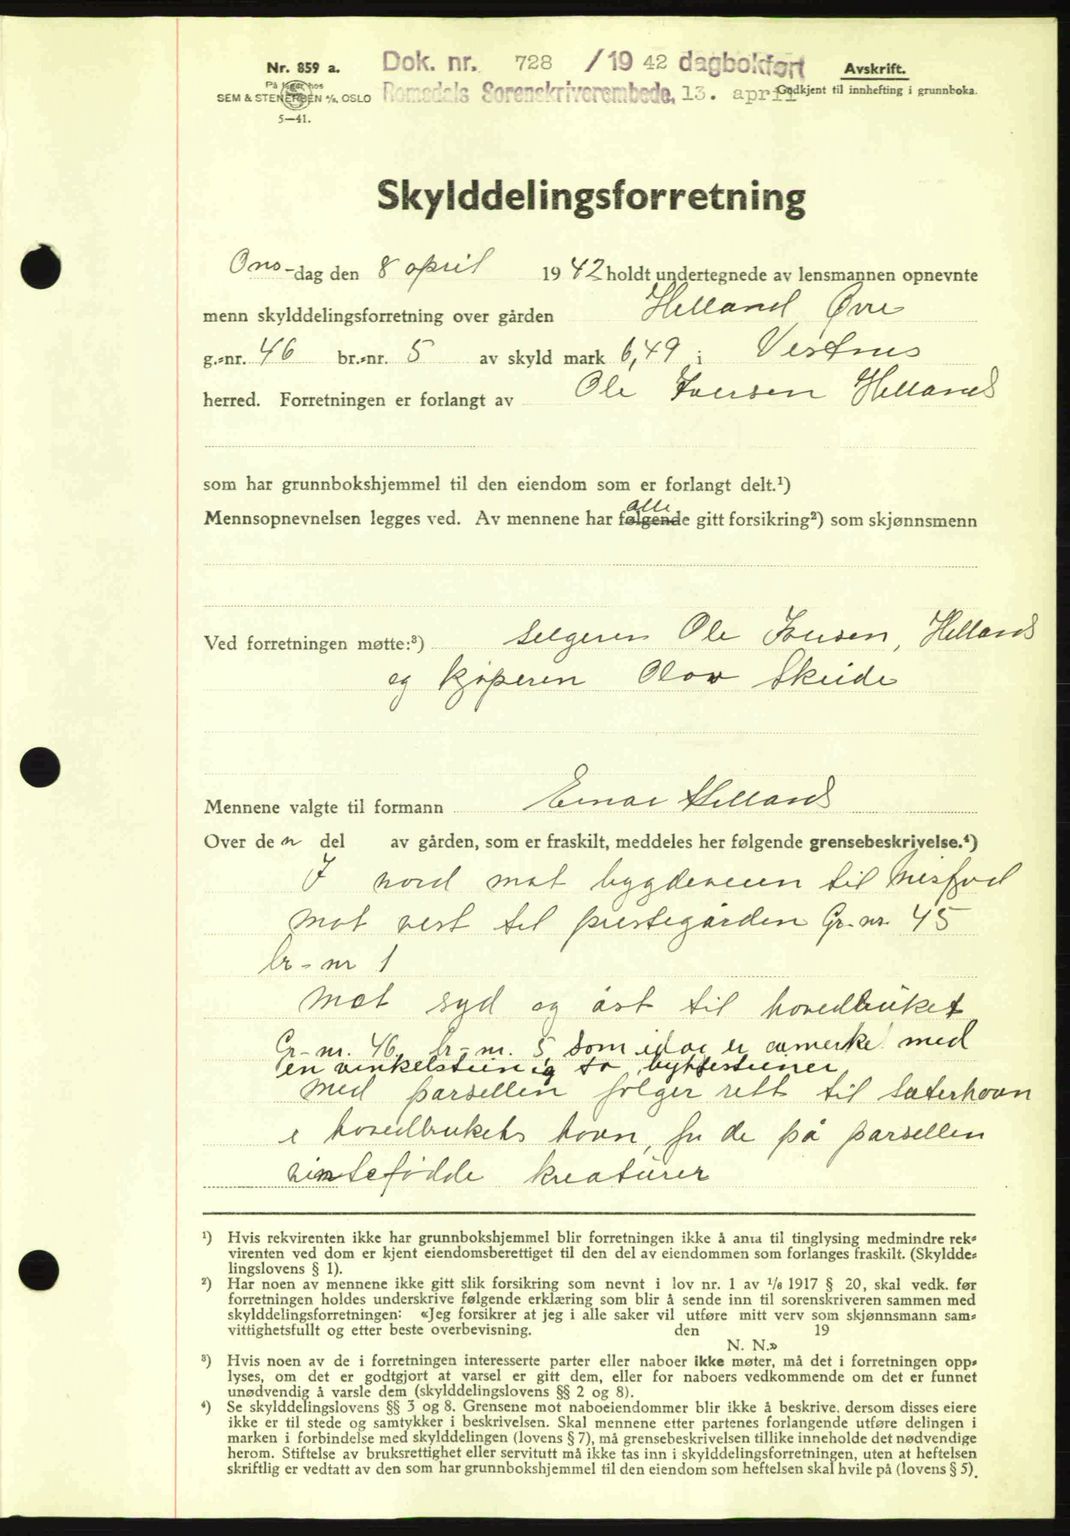 Nr. 859 a.
På lager hos
SEM & STENERSEN A/S, OSLO
5—41.
Dok. nr. 728 / 19 42 dagbokført
Romsdals Sorenskriverembede, 13. april
Avskrift.
Godkjent til innhefting i grunnboka.
Skylddelingsforretning
Ons-dag den 8 april 1942 holdt undertegnede av lensmannen opnevnte
menn skylddelingsforretning over gården Helland Øvre
g.-nr. 46 br.-nr. 5 av skyld mark 6,49 i Vestnes
herred. Forretningen er forlangt av Ole Iversen Helland
som har grunnbokshjemmel til den eiendom som er forlangt delt.¹)
alle
Mennsopnevnelsen legges ved. Av mennene har følgende gitt forsikring²) som skjønnsmenn
Ved forretningen møtte:³) Selgeren Ole Iversen, Helland
og kjøperen Olav Skeide
Mennene valgte til formann Einar Helland
Over den del av gården, som er fraskilt, meddeles her følgende grensebeskrivelse.⁴)
I nord mot bygdeveien til
mot vest til prestegården Gr-nr 45
br-nr 1
Mot syd og øst til hovedbruket
Gr-nr. 46, br-nr. 5, som idag er avmerket med
en vinkelstein og to byttesteiner
Med parsellen følger rett til sæterhavn
i hovedbrukets havn, for de på parsellen
vinterfødde kreaturer
¹) Hvis rekvirenten ikke har grunnbokshjemmel blir forretningen ikke å anta til tinglysing medmindre rek-
virenten ved dom er kjent eiendomsberettiget til den del av eiendommen som forlanges fraskilt. (Skyldde-
lingslovens § 1).
²) Har noen av mennene ikke gitt slik forsikring som nevnt i lov nr. 1 av 1/6 1917 § 20, skal vedk. før
forretningen holdes underskrive følgende erklæring som blir å sende inn til sorenskriveren sammen med
skylddelingsforretningen: «Jeg forsikrer at jeg i alle saker vil utføre mitt verv som skjønnsmann sam-
vittighetsfullt og etter beste overbevisning. den 19
N. N.»
³) Hvis noen av de i forretningen interesserte parter eller naboer ikke møter, må det i forretningen opp-
lyses, om det er godtgjort at varsel er gitt dem, eller for naboers vedkommende om det er funnet
unødvendig å varsle dem (skylddelingslovens §§ 2 og 8).
⁴) Se skylddelingslovens §§ 3 og 8. Grensene mot naboeiendommer blir ikke å beskrive, dersom disses eiere
ikke er til stede og samtykker i beskrivelsen. Skal mennene etter partenes forlangende utføre delingen i
marken i forbindelse med skylddelingen (lovens § 7), må grensebeskrivelsen tillike inneholde det nødvendige
herom. Stiftelse av bruksrettighet eller servitutt må ikke tas inn i skylddelingsforretningen, uten at heftelsen
skriftlig er vedtatt av den som har grunnbokshjemmel til den eiendom som heftelsen skal hvile på (lovens § 5).